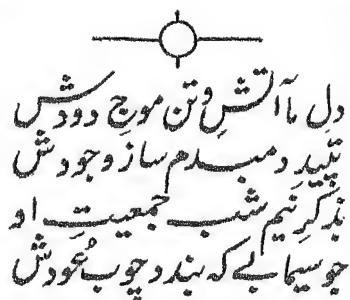 دلِ ما آتش و تن موجِ دودش
تپیدِ دمبدم سازِ وجودش
بذکرِ نیم شب جمعیتِ او
چو سیمابے کہ بندد چوبِ عُودش